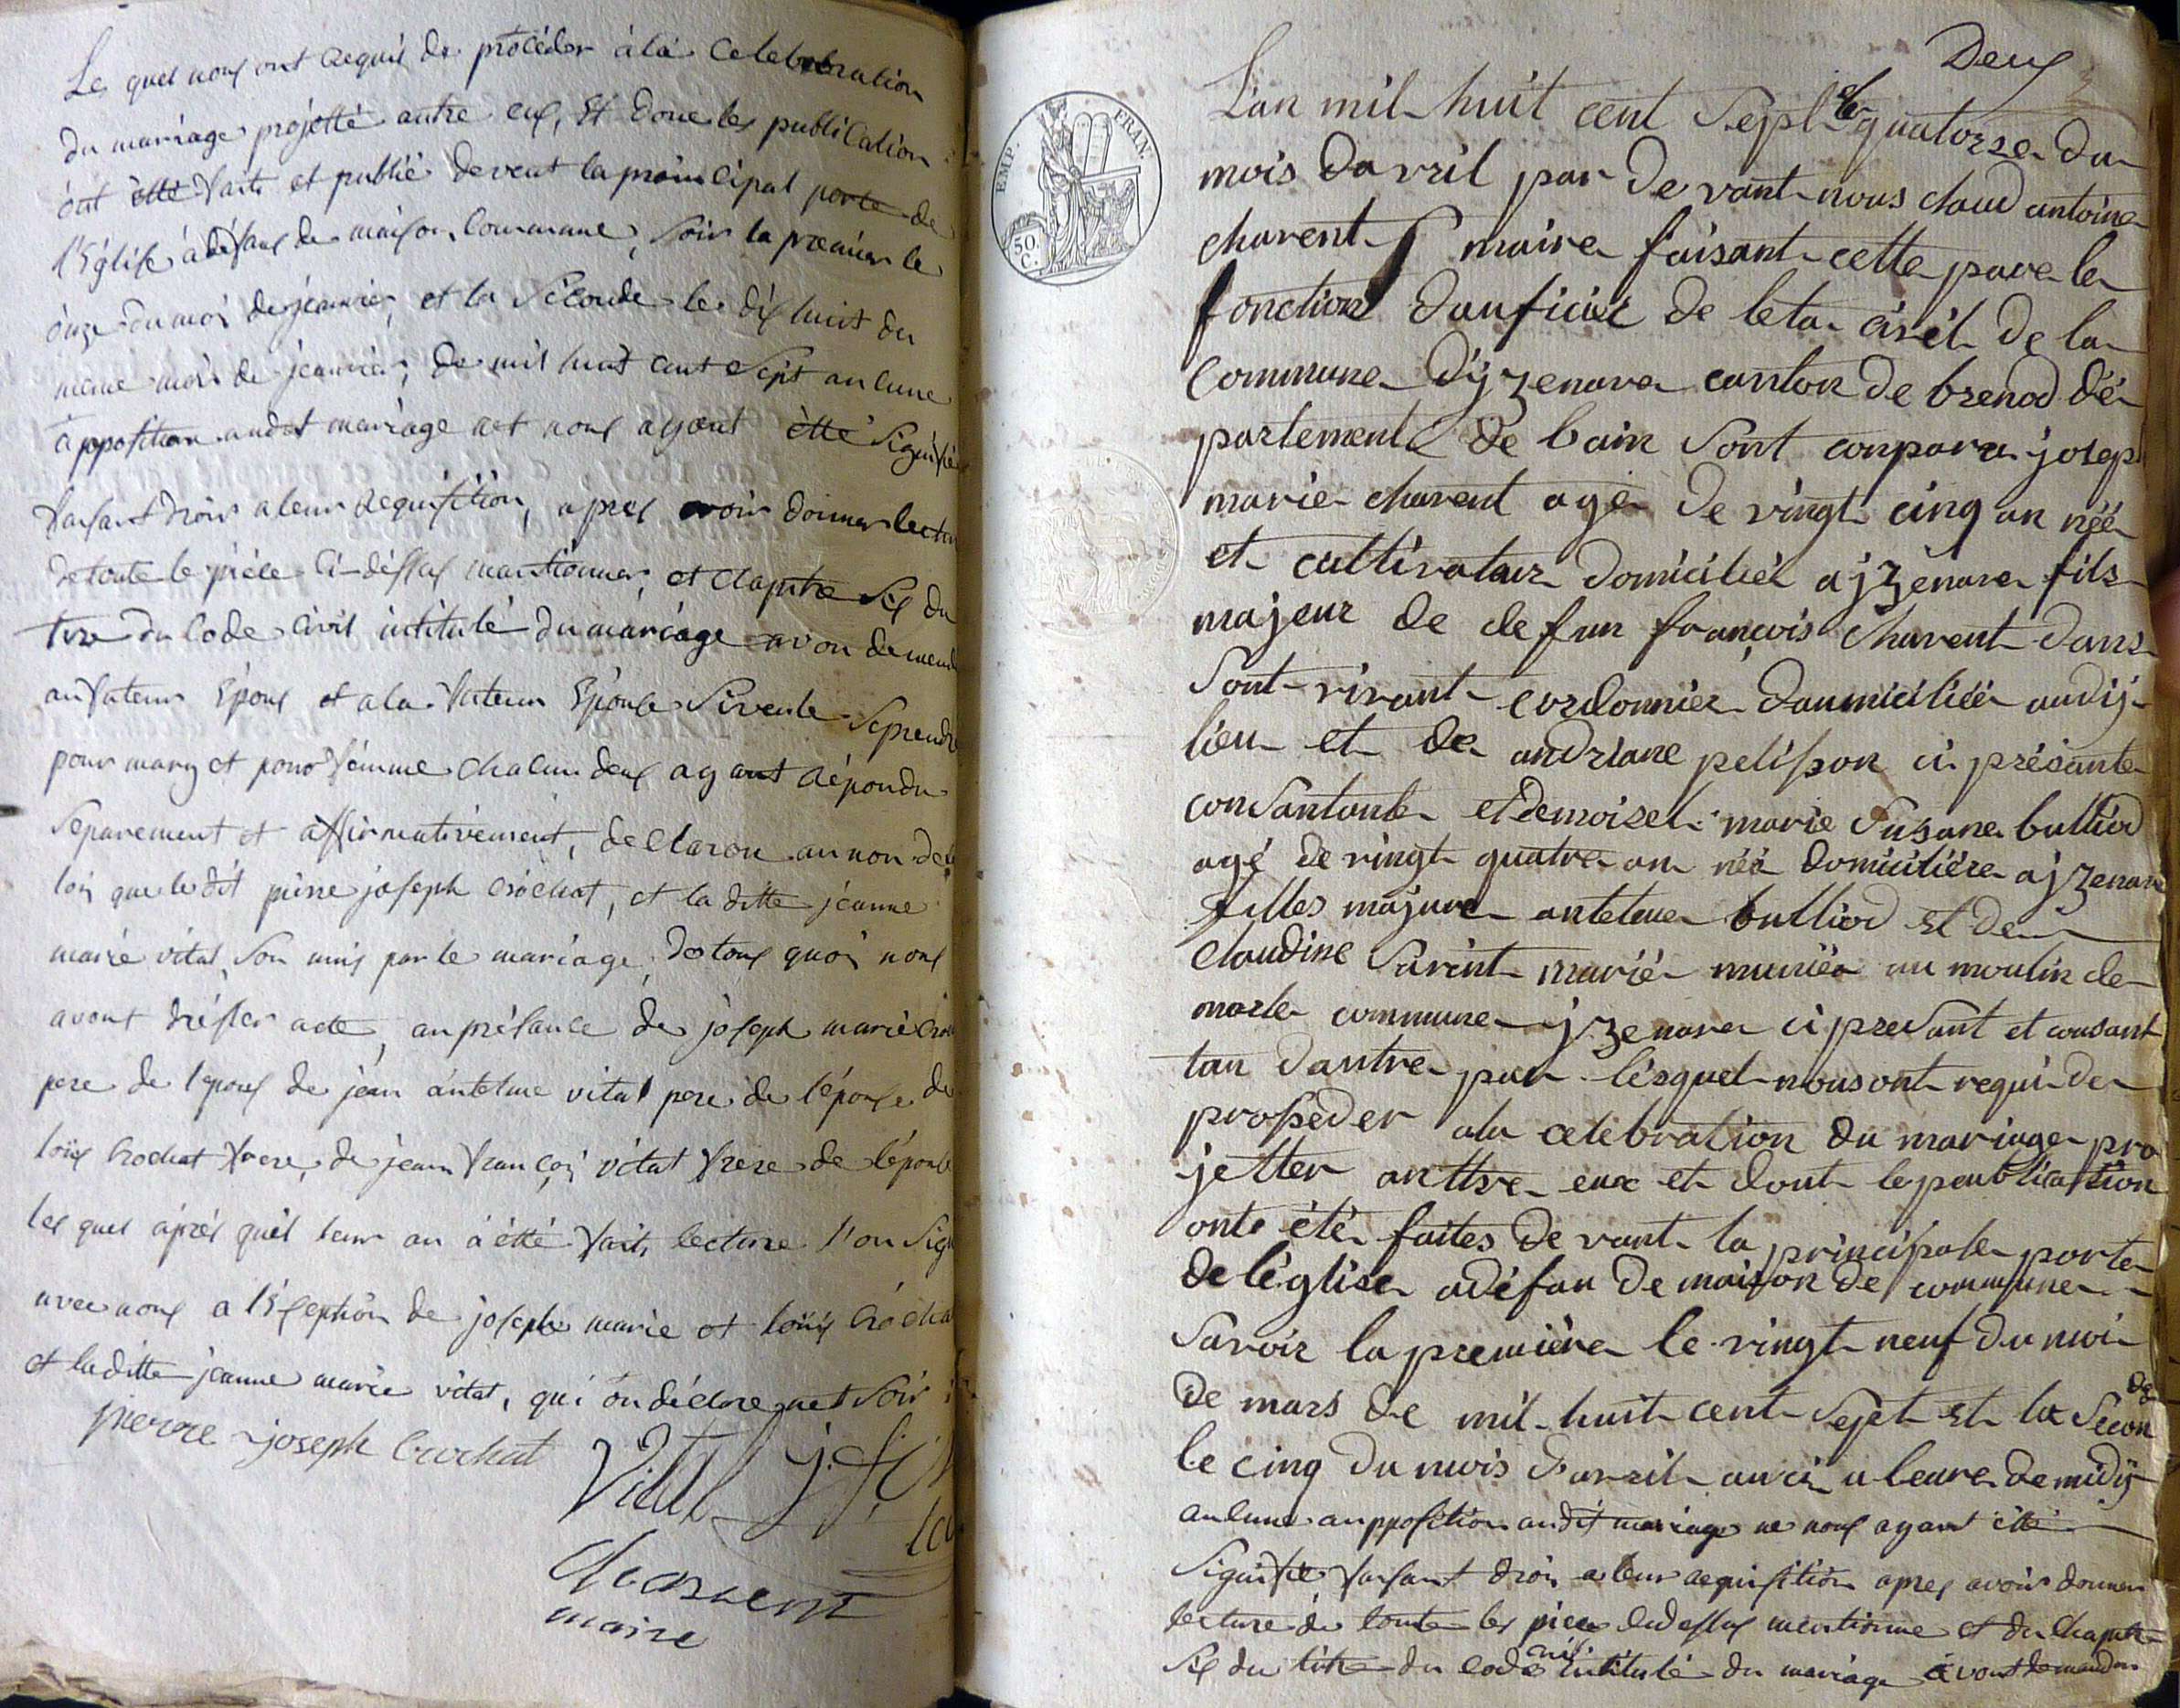 Les quel nous ont requis de procéder à la Celebrebration
du mariage projetté antre eux, et done les publication
ont étté faite et publié devent la prinncipal porte de
l'Église à défaut de maison Commune, soir la premier le
onze du moi de jeanvier, et la Séconde le dix huit du
meme mois de jeanvier, de mil huit cent Sept aucune
àpposition audit mariage net nous ayant étté Signifié
faisant droir a leur requisition, apres avoir donner lectur
de toute le pièce ci-déssus mantionner, et Chapitre Six du
titre du Code Civil intitulé du mariage avon demend
au futeur Epoux et a la futeur Epouse Si veule Seprendre
pour mary et pour fémme chacun deux ayant répondu
Séparement et affirmativement, declaron au non de la
loi que le dit pierre joseph Crochat, et la ditte jéanne
marie vital, Son unis par le mariage, de tous quoi nous
avont drésser acte, anprésance de joseph marie Cro
pere de l'epoux de jean antelme vital pere de l'épouse de
loüis Crochat frere, de jean françoi vital frere de l'épouse
les quel àprés quèl leur an à étté faite lecture l'on Sign
avec nous a l'Exseption de joseph marie et loüis Crocha
et laditte jeanne marie vital, qui on déclare net Soir
pierre joseph Crochat
Vital j. f.
Charvent
maire
Deux
EMP. FRAN.
50. C.
L'an mil huit cent Sept le quatorze du
mois davril par devant nous claud antoine
charvent maire faisant cette pare le
fonction dauficier de leta civel de la
commune dijzenave canton de brenod dé
partement de lain Sont conparu josep
marie charvent age de vingt cinq an néé
et cultivateur domiciliéé ajzenave fils
majeur de defun françois Charvent dans
Sont vivant cordonnier daumiciliéé audij
lieu et de andriane pelisson ci présante
consantante et demoisel marie Susane bullier
agé de vingt quatre an néé domiciliére ajzenave
filles majure antelme bullier et de
claudine Savint mariée muniéa au moulin de
marle commune jzenave ci presant et consant
tan dautre par lésquel nous ont requi de
prosseder ala celebration du mariage pro
jetter anttre eux et dont le peublication
onte été faites de vant la principale porte
de léglise adéfau de maison de commune
Savoir la premiére le vingt neuf du moi
de mars de mil huit cent Sept et la Secon
de
le cinq du mois davril auci a leure de midij
aucune aupposition audit mariage ne nous ayant étté
Signifié faisant droi a leur requisition apres avoir donner
lecture de toute les piece cidessus mentionne et du Chapitre
Six du titre du code civil intitulé du mariage avont demander